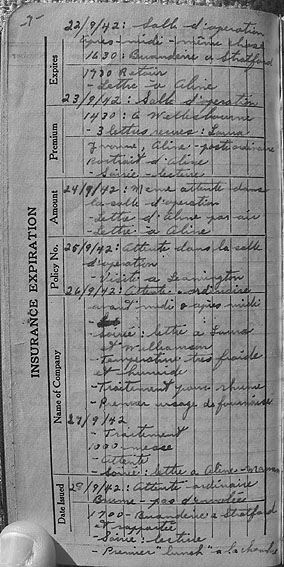 22/9/42: Salle d'operation
Après-midi - même chose
1630: Buanderie à Stratford
1730 Retour
- Lettre à Aline
23/9/42: Salle d'operation
1430: A Wellesbourne
- 3 lettres recues: Laura
Yvonne, Aline - postordinaire
Portrait d'Aline
- Soirée - lecture
24/9/42: Meme attente dans
la salle d'operation
- lettre d'Aline par air
- lettre à Aline
25/9/42: Attente dans la salle
d'operation
- Visite à Leamington
26/9/42: Attente ordinaire
avant midi & après midi
- Soirée: lettre à Laura
& Williamson
- Temperature très froide
et humide
- Traitement pour rhume
- Premier usage de fournaise
27/9/42
- Traitement
1000 messe
- Attente
- Soirée: lettre à Aline - maman
28/9/42: Attente ordinaire
Brume - pas d'envolée
1700 - Buanderie à Stratford
et rapportée
- Soirée: lecture
- Premier "lunch" à la chambre
INSURANCE EXPIRATION
Date Issued
Name of Company
Policy No.
Amount
Premium
Expires